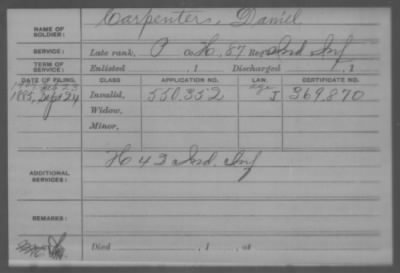 NAME OF SOLDIER: Carpenter, Daniel
SERVICE: Late rank, P Co. H, 87 Reg't Ind Inf
TERM OF SERVICE: Enlisted , 1 Discharged , 1
DATE OF FILING. CLASS APPLICATION NO. LAW. CERTIFICATE NO.
23 age
1885, Sept 24 Invalid, 550.352 J 369.870
Widow,
Minor,
ADDITIONAL SERVICES: H 42 Ind. Inf
REMARKS:
Died , 1 , at